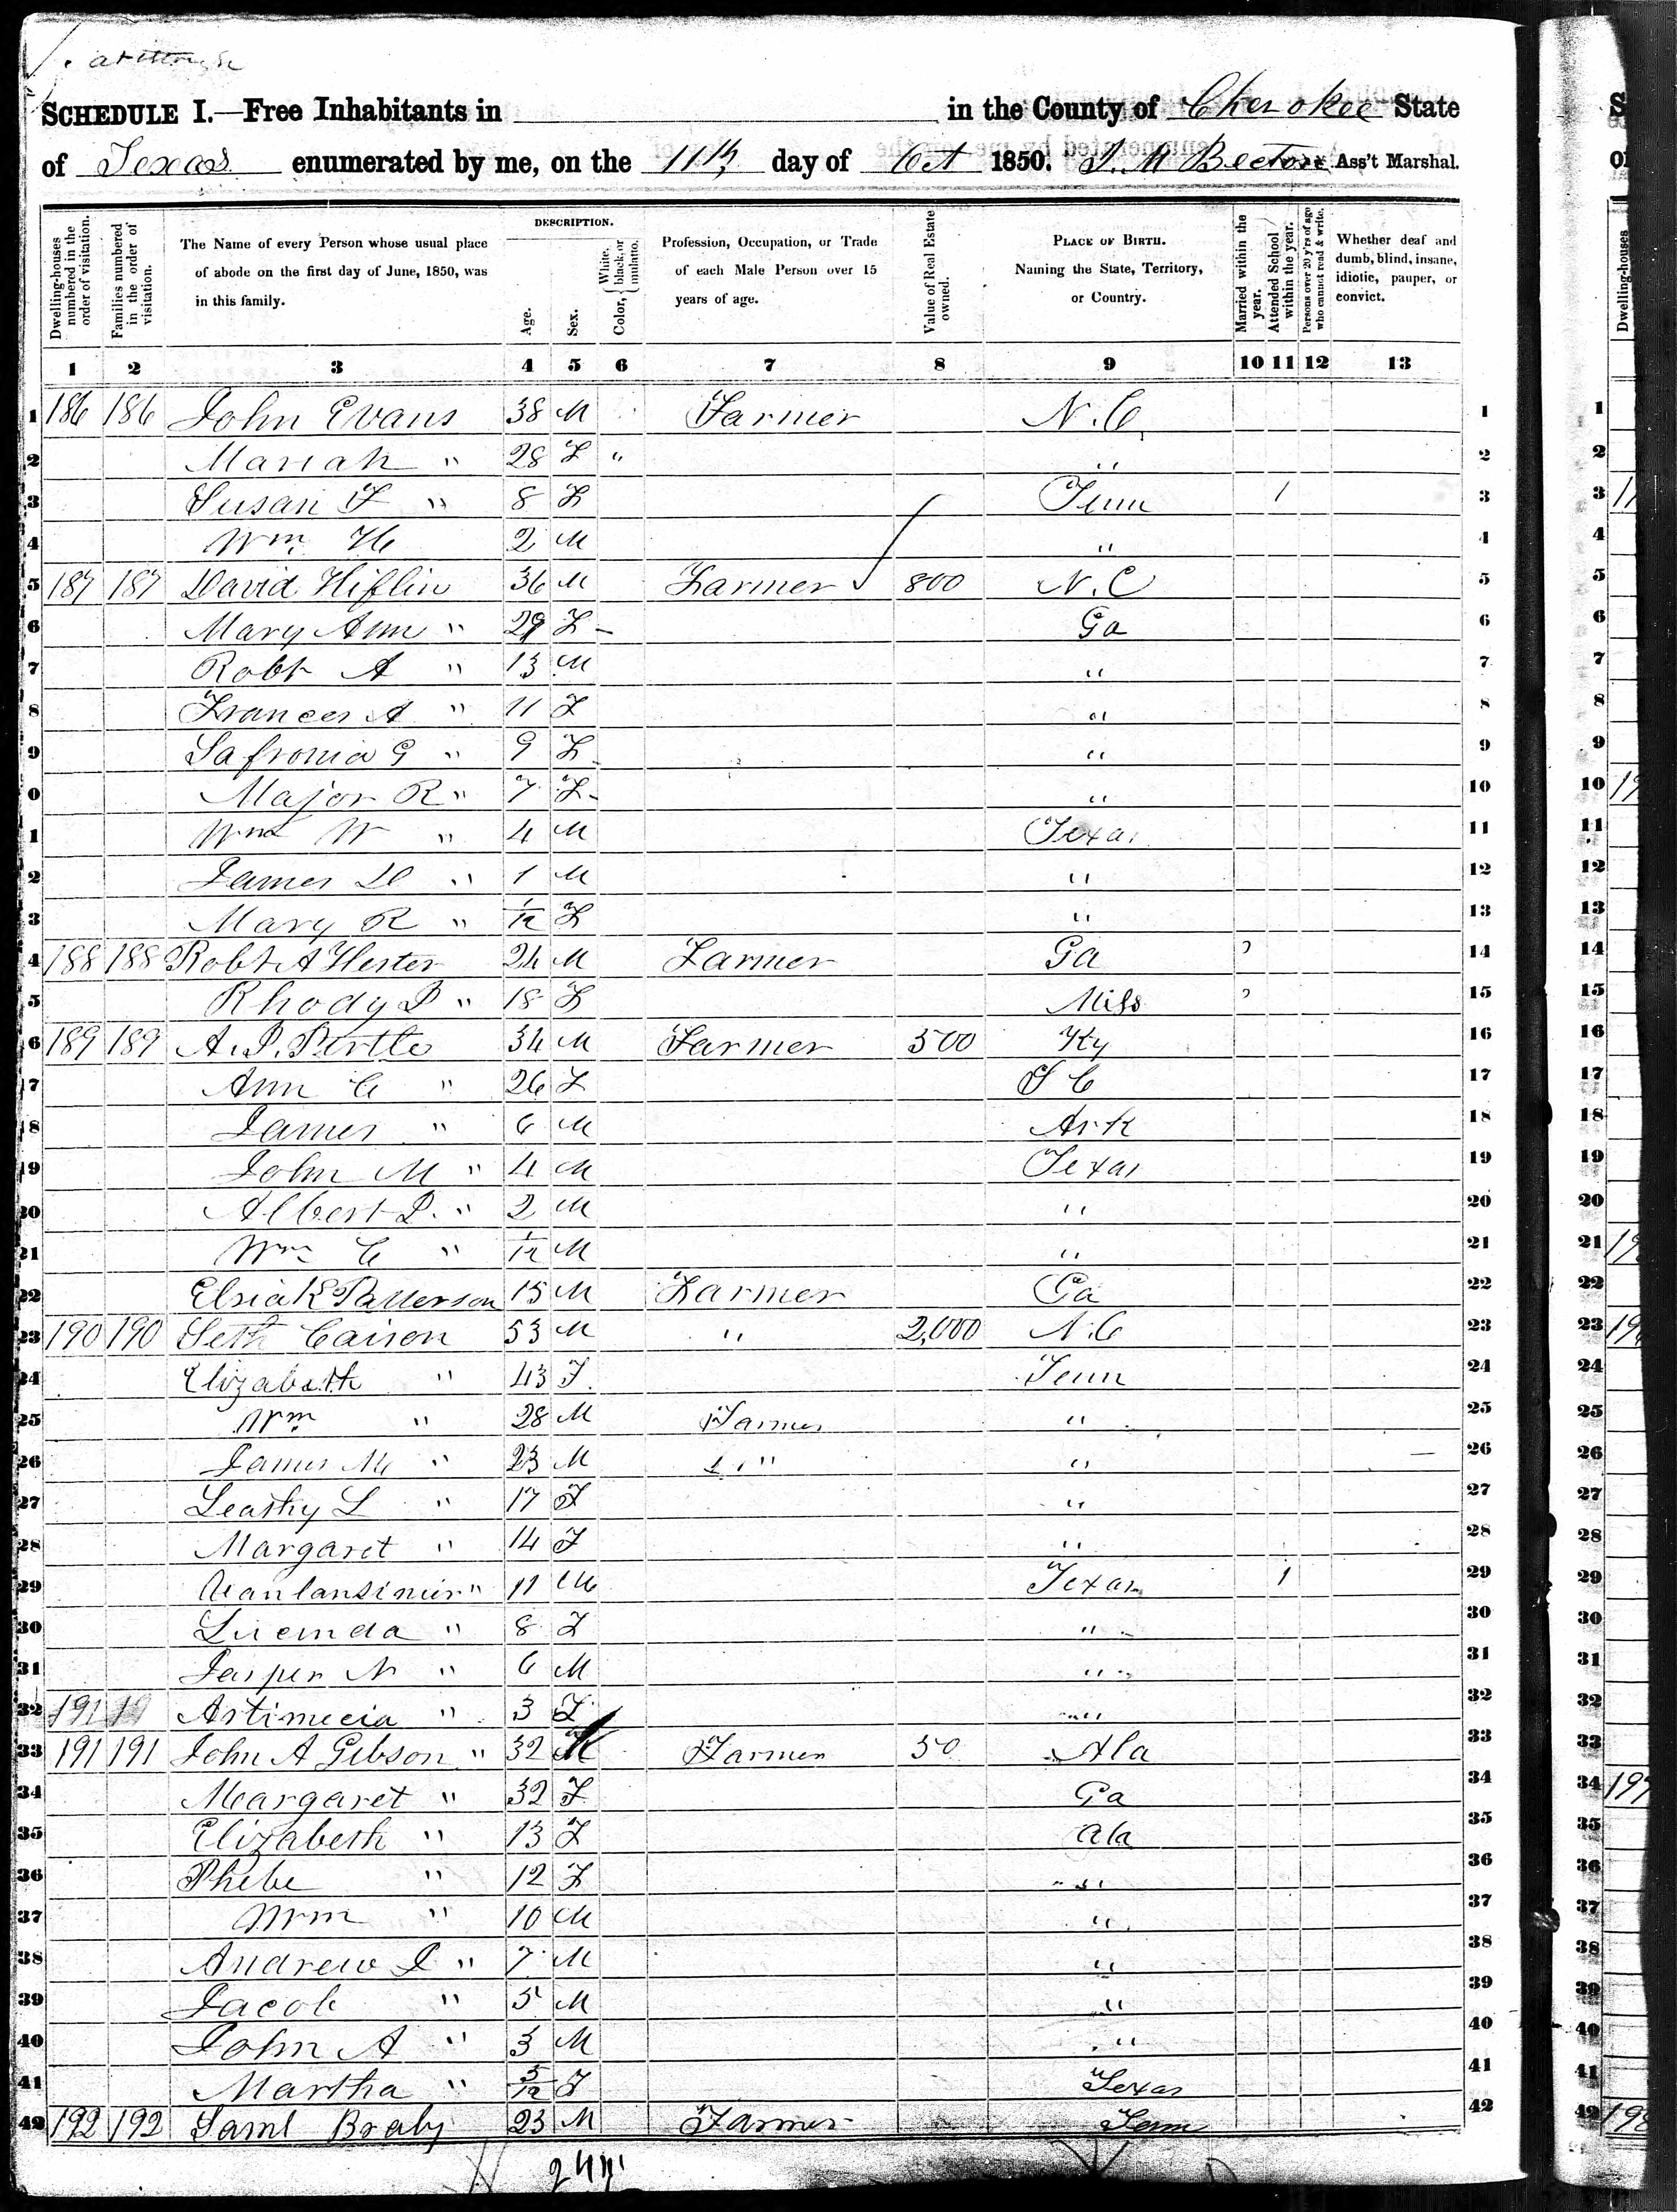 SCHEDULE I.—Free Inhabitants in in the County of Cherokee State
of Texas enumerated by me, on the 11th day of Oct 1850. Ass't Marshal.
Dwelling-houses numbered in the order of visitation.
Families numbered in the order of visitation.
The Name of every Person whose usual place of abode on the first day of June, 1850, was in this family.
DESCRIPTION.
Age.
Sex.
Color, { White, black, or mulatto.
Profession, Occupation, or Trade of each Male Person over 15 years of age.
Value of Real Estate owned.
PLACE OF BIRTH. Naming the State, Territory, or Country.
Married within the year.
Attended School within the year.
Persons over 20 y'rs of age who cannot read & write.
Whether deaf and dumb, blind, insane, idiotic, pauper, or convict.
1 2 3 4 5 6 7 8 9 10 11 12 13
1 186 186 John Evans 38 M Farmer N.C. 1
2 Mariah " 28 F " " 2
3 Susan F " 8 F Tenn 1 3
4 Wm H 2 M " 4
5 187 187 David Hiflin 36 M Farmer 800 N.C 5
6 Mary Ann " 29 F Ga 6
7 Robt A " 13 M " 7
8 Frances A " 11 F " 8
9 Safronia G " 9 F " 9
0 Major R " 7 F " 10
1 Wm W " 4 M Texas 11
2 James D " 1 M " 12
3 Mary R " 1/12 F " 13
4 188 188 Robt A Hester 24 M Farmer Ga 14
5 Rhody P " 18 F Miss 15
6 189 189 A. P. Pertle 34 M Farmer 500 Ky 16
17 Ann C " 26 F S C 17
18 James " 6 M Ark 18
19 John M " 4 M Texas 19
20 Albert P. " 2 M " 20
21 Wm C " 1/12 M " 21
22 Patterson 15 M Farmer Ga 22
23 190 190 Seth Cairon 53 M " 2,000 N.C 23
24 Elizabeth " 43 F Tenn 24
25 Wm " 28 M Farmer " 25
26 James M " 23 M " " 26
27 Leathy L " 17 F " 27
28 Margaret " 14 F " 28
29 " 11 M Texas 1 29
30 Lucinda " 8 F " 30
31 Jasper N " 6 M " 31
32 191 19 Artimecia " 3 F " 32
33 191 191 John A Gibson " 32 M Farmer 50 Ala 33
34 Margaret " 32 F Ga 34
35 Elizabeth " 13 F Ala 35
36 Phebe " 12 F " 36
37 Wm " 10 M " 37
38 Andrew J " 7 M " 38
39 Jacob " 5 M " 39
40 John A " 3 M " 40
41 Martha " 5/12 F Texas 41
42 192 192 Saml Braly 23 M Farmer Tenn 42